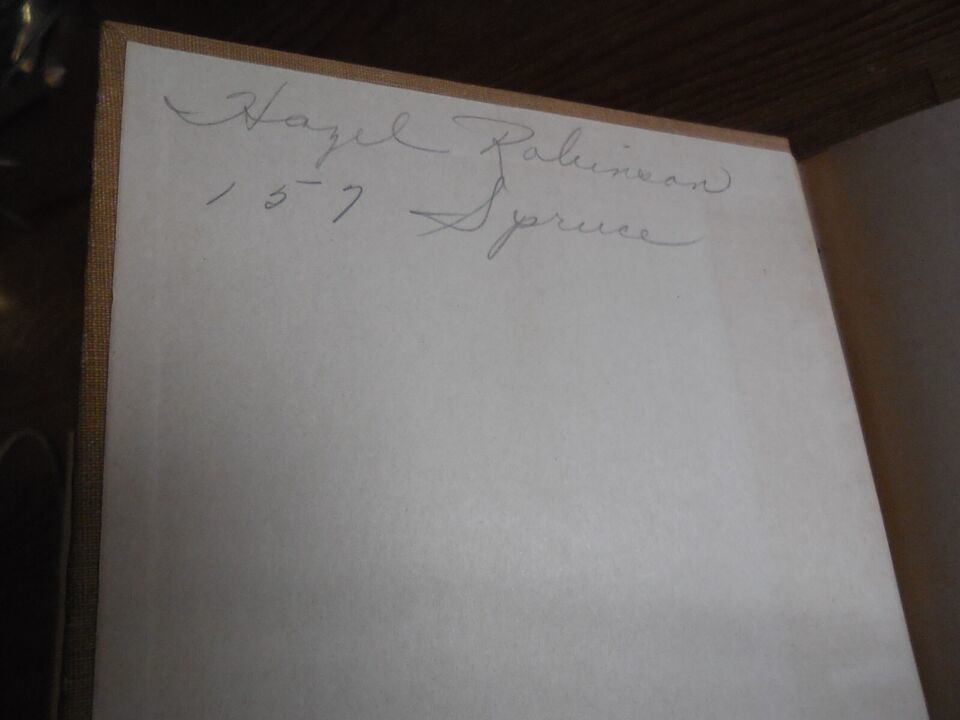 Hazel Robinson
157 Spruce